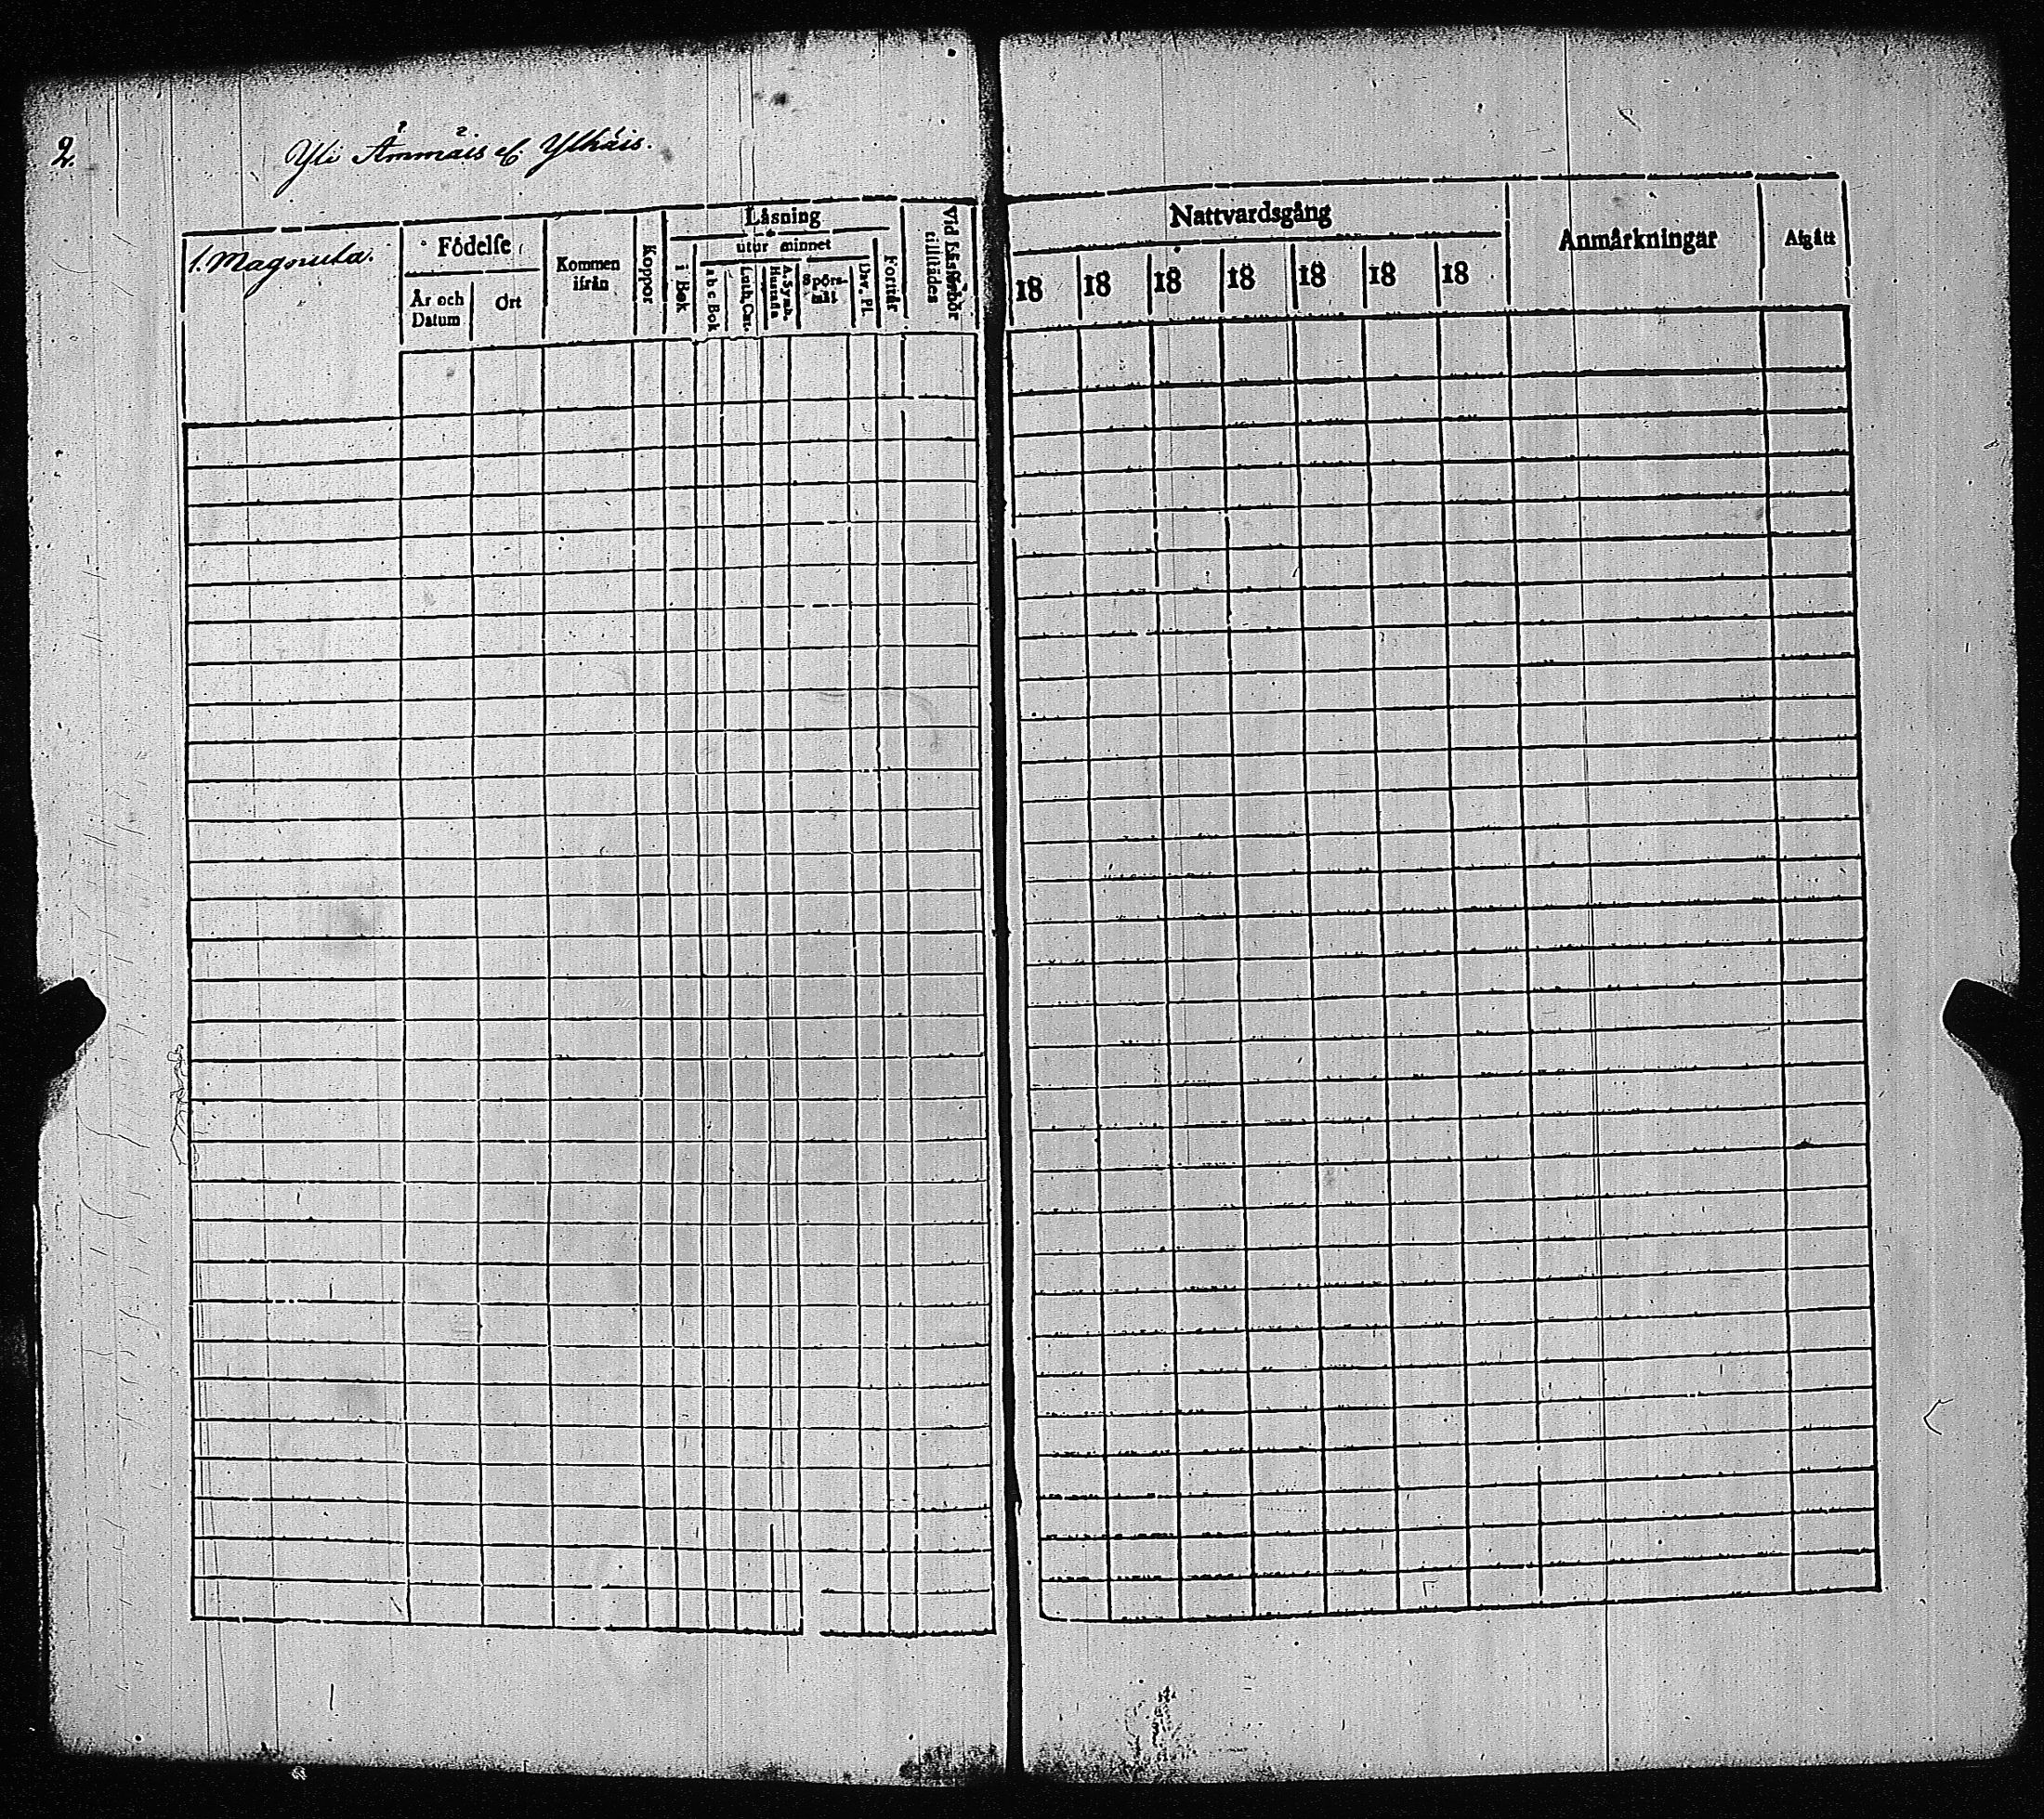 2.
Yli Ämmäis el. Ylhäis.
1. Magonula.
Födelse
År och Datum
Ort
Kommen ifrån
Koppor
Läsning
i Bok
utur minnet
a b c Bok
Luth. Cat.
A. Symb. Hustafla
Spörsmål
Dav. Ps.
Förstår
Vid Läsförhör tillstädes
Nattvardsgång
18 18 18 18 18 18 18
Anmärkningar
Afgått